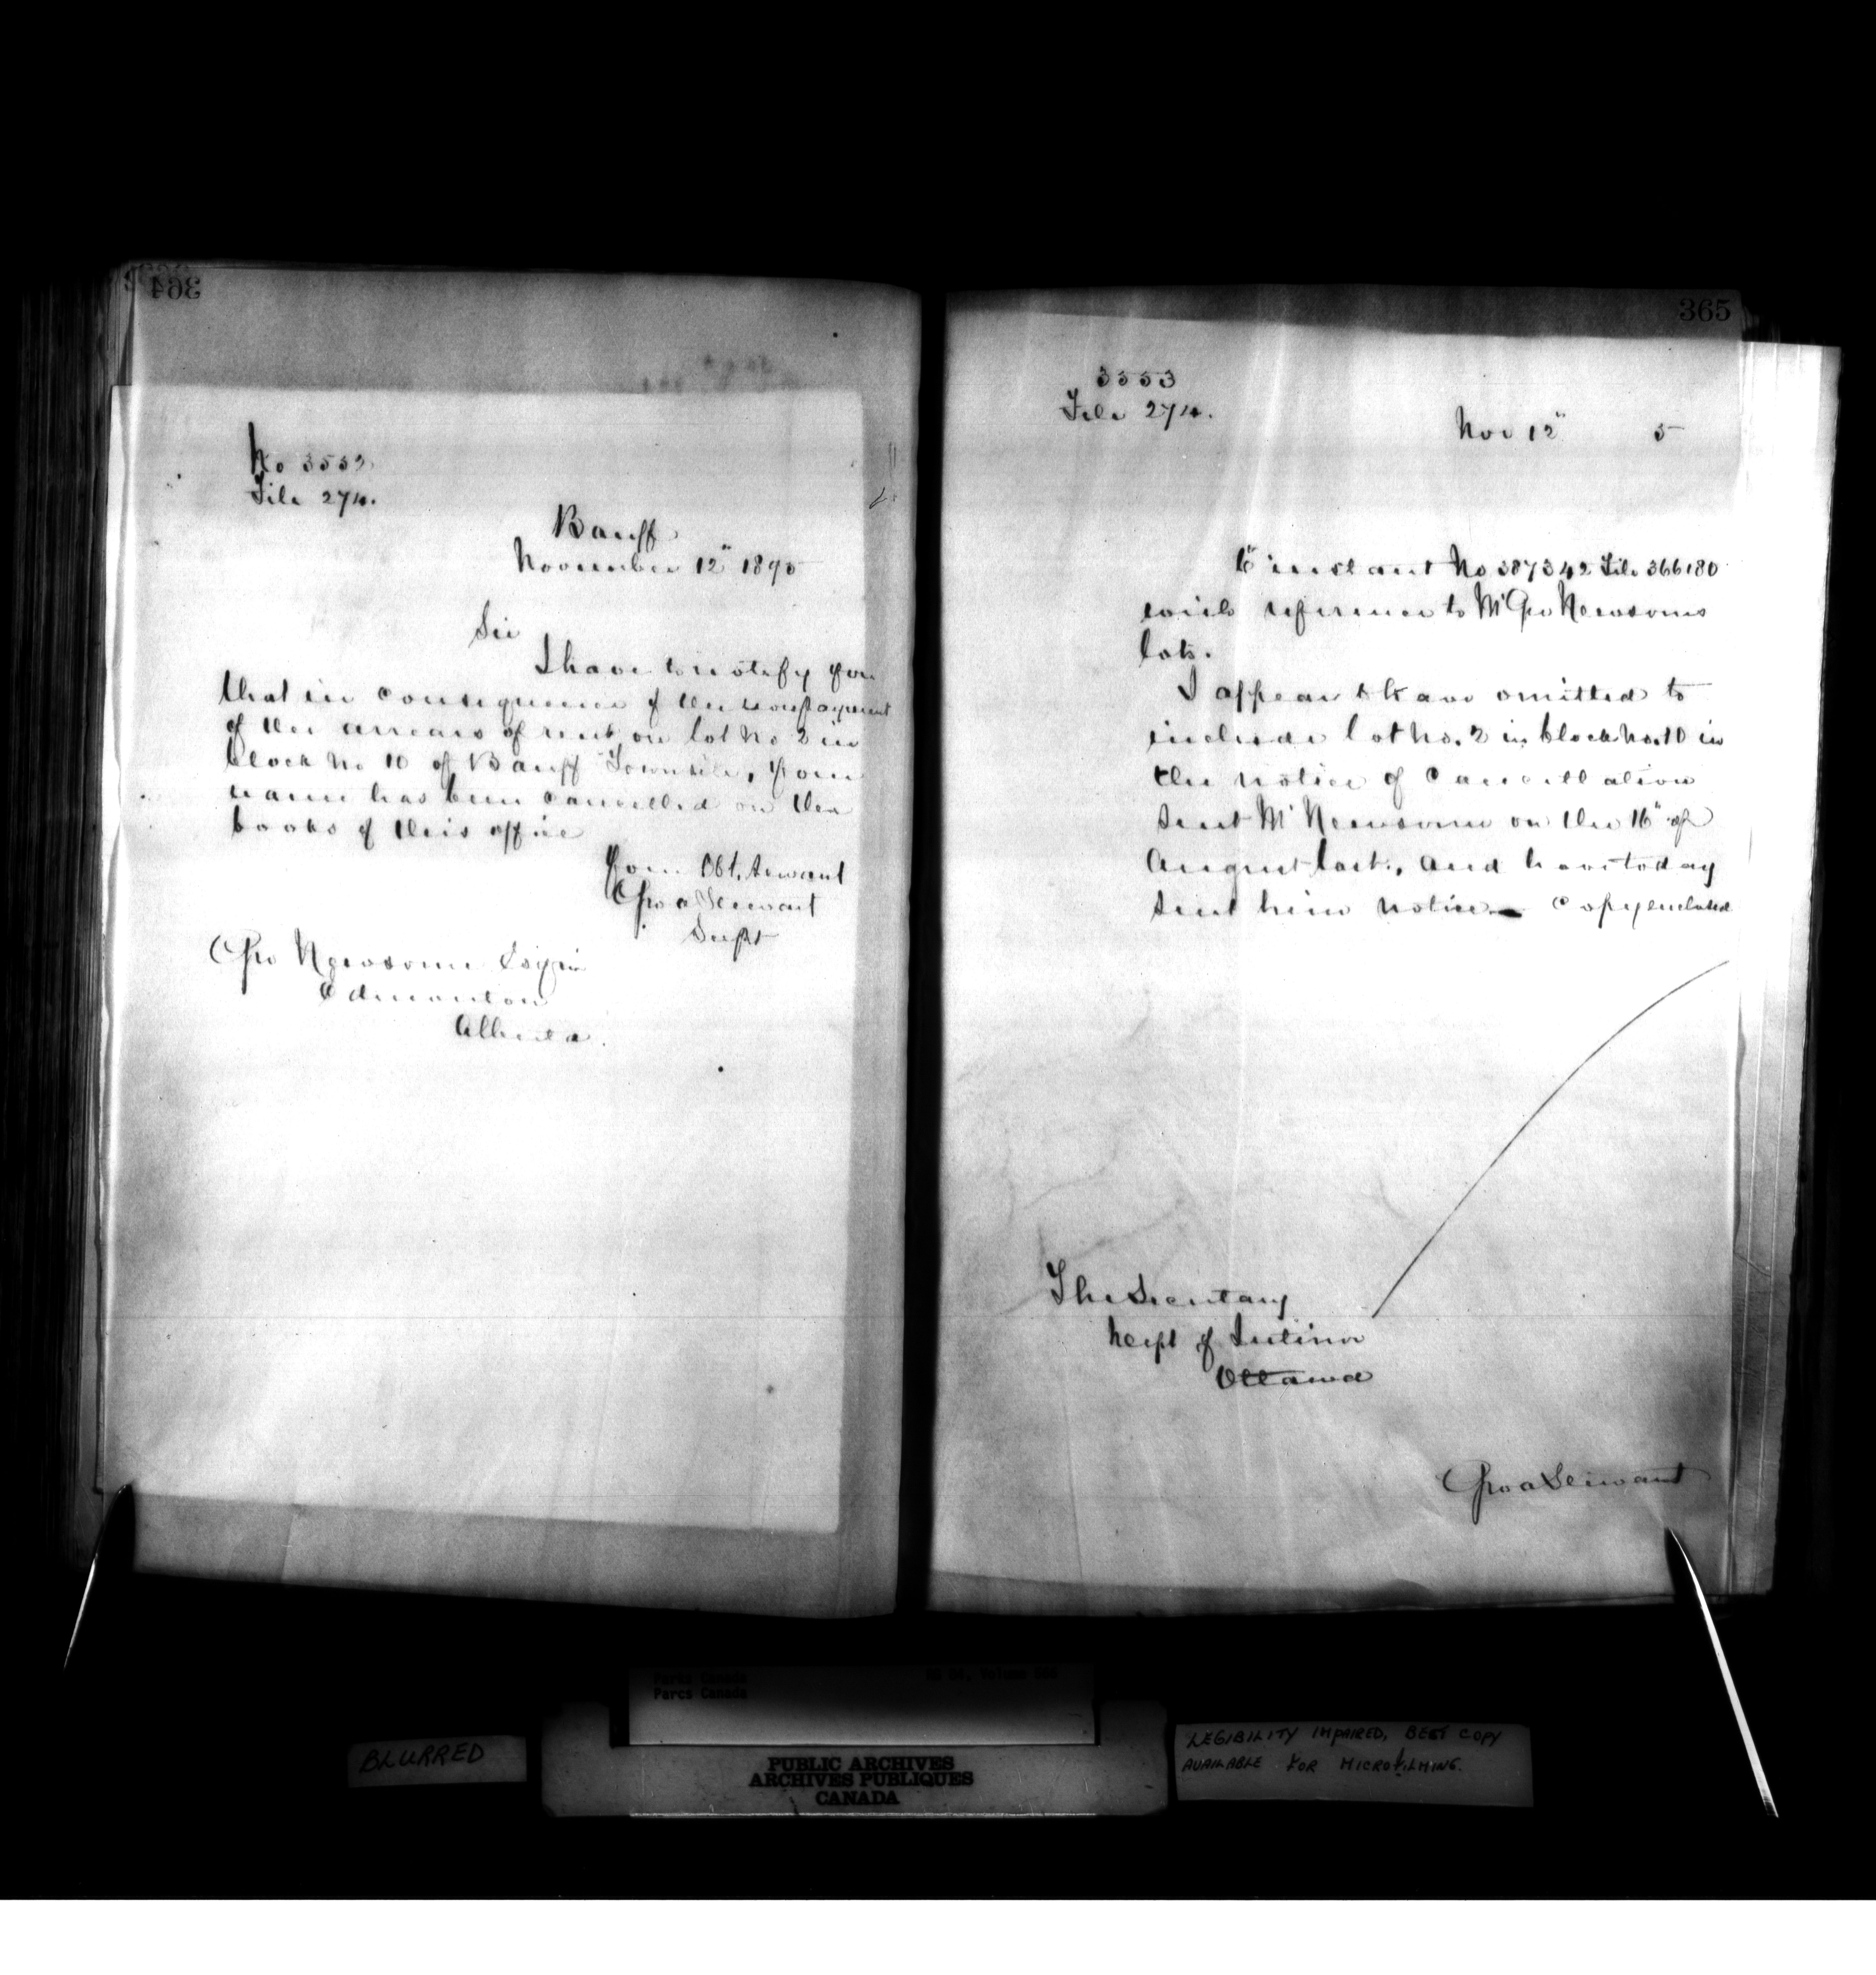 364
No 3552
File 274.
Banff
November 12" 1895
Sir
I have to notify you
that in consequence of the nonpayment
of the arrears of rent on lot No 2 in
block No 10 of Banff Townsite, your
name has been cancelled on the
books of this office
Your Obt. Servant
Geo A Stewart
Supt
Geo Newsome Esquire
Edmonton
Alberta.
365
3553
File 274.
Nov 12" 5
6" instant No 387342 File 366180
with reference to Mr Geo Newsoms
lots.
I appear to have omitted to
include lot No. 2 in block No. 10 in
the notice of Cancellation
sent Mr Newsome on the 16" of
August last, and have today
sent him notice - Copy enclosed
The Secretary
Dept of Interior
Ottawa
Geo A Stewart
Parks Canada
Parcs Canada
BLURRED
PUBLIC ARCHIVES
ARCHIVES PUBLIQUES
CANADA
LEGIBILITY IMPAIRED, BEST COPY
AVAILABLE FOR MICROFILMING.